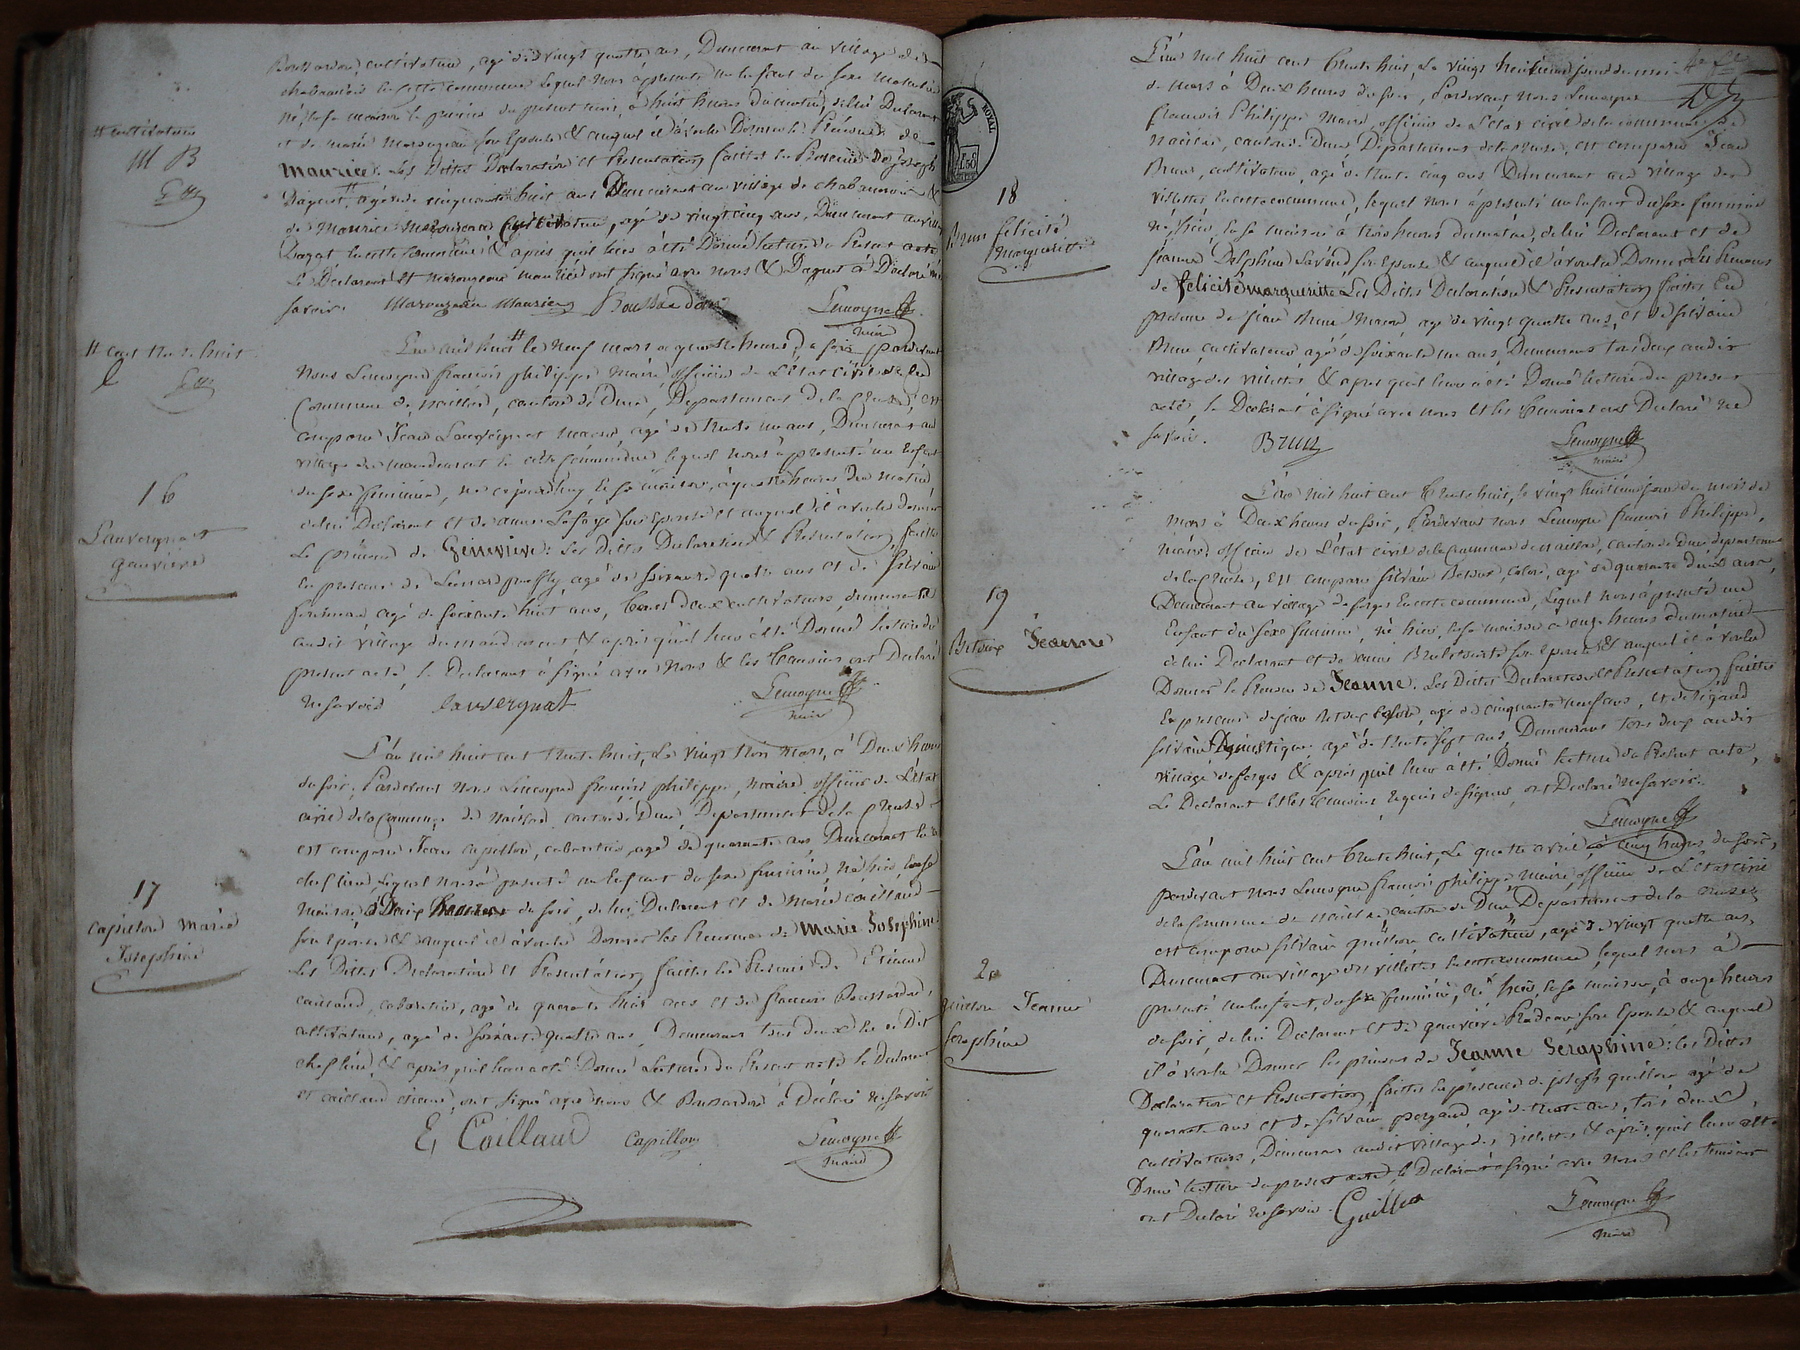 Boussardon, cultivateur, agé de vingt quatre ans, Demeurant au village de
chabannois en cette commune lequel nous à présenté un Enfant du sexe masculin
né, en sa maison le premier du présent mois, à huit heures du matin, de lui Déclarant
et de marie marougeau son Epouse & auquel il à voulu Donner le Prénom de
Maurice. Les Dittes Déclaration et Présentation faittes en Présence De joseph
Daguet # agé de cinquante huit ans Demeurant au village de chabannois &
de maurice marougeau cultivateur, agé de vingt cinq ans, Demeurant au village
en cette commune & après qu'il leur à été Donné lecture du Présent acte
Le Déclarant et marougeau maurice ont signé avec nous & Daguet à Déclaré ne
savoir. marougeau maurice Boussardon Lemoyne
maire
# cultivateur
M B
L'an mil huit # le neuf mars à quatre heures du soir pardevant
nous Lemoyne françois philippe maire officier de L'état civil de la
commune de naillac, canton de Dun, Département de la Creuse, est
comparu Jean Lauvergnat maçon, agé de trente un ans, Demeurant au
village de en cette commune lequel nous à présenté un Enfant
du sexe féminin, né en sa maison, à quatre heures du matin
de lui Déclarant et de anne Lafaye son Epouse et auquel il à voulu donner
Le prénom de Génevieve. Les Dittes Déclaration & Présentation faittes
en présence de Léonard agé de soixante quatre ans et de silvain
agé de soixante huit ans, tous deux cultivateurs, demeurant
audit village & après qu'il leur à été Donné lecture du
présent acte, le Déclarant à signé avec nous & les témoins ont Déclaré
ne savoir lauvergnat Lemoyne
maire
# cent trente huit
16
Lauvergnat
genvieve
L'an mil huit cent trente huit, Le vingt trois mars, à Deux heures
du soir, Pardevant nous Lemoyne françois philippe, maire officier de L'état
civil de la commune de naillac, canton de Dun Département de la Creuse
est comparu Jean Capillon, cabaretier, agé de quarante ans Demeurant
chef lieu, Lequel nous à présenté un Enfant du sexe féminin, né hier, en sa
maison à Deux heures du soir, de lui Déclarant et de marie caillaud
son Epouse & auquel il à voulu Donner les Prénoms de Marie Josephine
Les Dittes Déclaration et Présentation faittes en Présence De Etienne
caillaud, cabaretier, agé de quarante huit ans et de françois Boussardon,
cultivateur, agé de soixante quatre ans, Demeurant tous deux en ce Dit
chef lieu, & après qu'il leur à été Donné Lecture du Présent acte le Déclarant
et caillaud etienne, ont signé avec nous & Boussardon à Déclaré ne savoir
E, Caillaud Capillon Lemoyne
maire
17
Capillon Marie
Josephine
L'an mil huit cent trente huit, Le vingt huitieme jour du mois
de mars à Deux heures du soir, Pardevant nous Lemoyne
françois Philippe Maire, officier de L'état civil de la commune de
naillac, canton de Dun, Département de la Creuse, est comparu Jean
Brun, cultivateur, agé de trente cinq ans Demeurant au village des
villettes en cette commune, lequel nous à présenté un Enfant du sexe féminin
né, hier, en sa maison à trois heures du matin, de lui Déclarant et de
Jeanne Delphine son Epouse & auquel il à voulu Donner les Prénoms
de félicité marguerite Les Dittes Déclaration & Présentation faittes En
présence de jean Brun maçon agé de vingt quatre ans, et de silvain
Brun, cultivateur agé de soixante un ans, Demeurant tous deux audit
village des villettes & après qu'il leur à été Donné lecture du présent
acte, le Déclarant à signé avec nous et les témoins ont Déclaré ne
savoir. Brun Lemoyne
maire
ROYAL
18
Brun félicité
marguerite
L'an mil huit cent trente huit, le vingt huitieme jour du mois de
mars à Deux heures du soir, Pardevant nous Lemoyne françois Philippe,
maire officier de L'état civil de la commune de naillac, canton de Dun, département
de la Creuse, Est comparu silvain Betoux, colon, agé de quarante deux ans,
Demeurant au village de forges En cette commune, Lequel nous à présenté un
Enfant du sexe féminin, né hier, en sa maison à onze heures du matin
de lui Déclarant et de son Epouse et auquel il à voulu
Donner le Prénom de Jeanne. Les Dittes Déclaration & Présentation faittes
En présence de jean Betoux colon, agé de cinquante neuf ans, et de
silvain Domestique agé de trente sept ans Demeurant tous deux audit
village de forges & après qu'il leur à été Donné lecture du Présent acte,
Le Déclarant et les témoins requis de signer, ont Déclaré ne savoir.
Lemoyne
19
Betoux Jeanne
L'an mil huit cent trente huit, Le quatre avril, à cinq heures du soir,
pardevant nous Lemoyne françois philippe maire officier de L'état civil
de la commune de naillac canton de Dun Département de la Creuse
est comparu silvain guillon cultivateur, agé de vingt quatre ans,
Demeurant au village des villettes en cette commune, lequel nous à
présenté un Enfant, du sexe féminin, né, hier, en sa maison, à onze heures
du soir, de lui Déclarant et de genvieve Pradeau son Epouse & auquel
il à voulu Donner les prénoms de Jeanne Seraphine: les Dittes
Déclaration et Présentation faittes en présence de joseph guillon agé de
quarante ans et de silvain agé de trente ans, tous deux
cultivateurs, Demeurant audit village des villettes & après qu'il leur à été
Donné lecture du présent acte, le Déclarant à signé avec nous et les témoins
ont Déclaré ne savoir. Guillon Lemoyne
maire
20
guillon Jeanne
seraphine